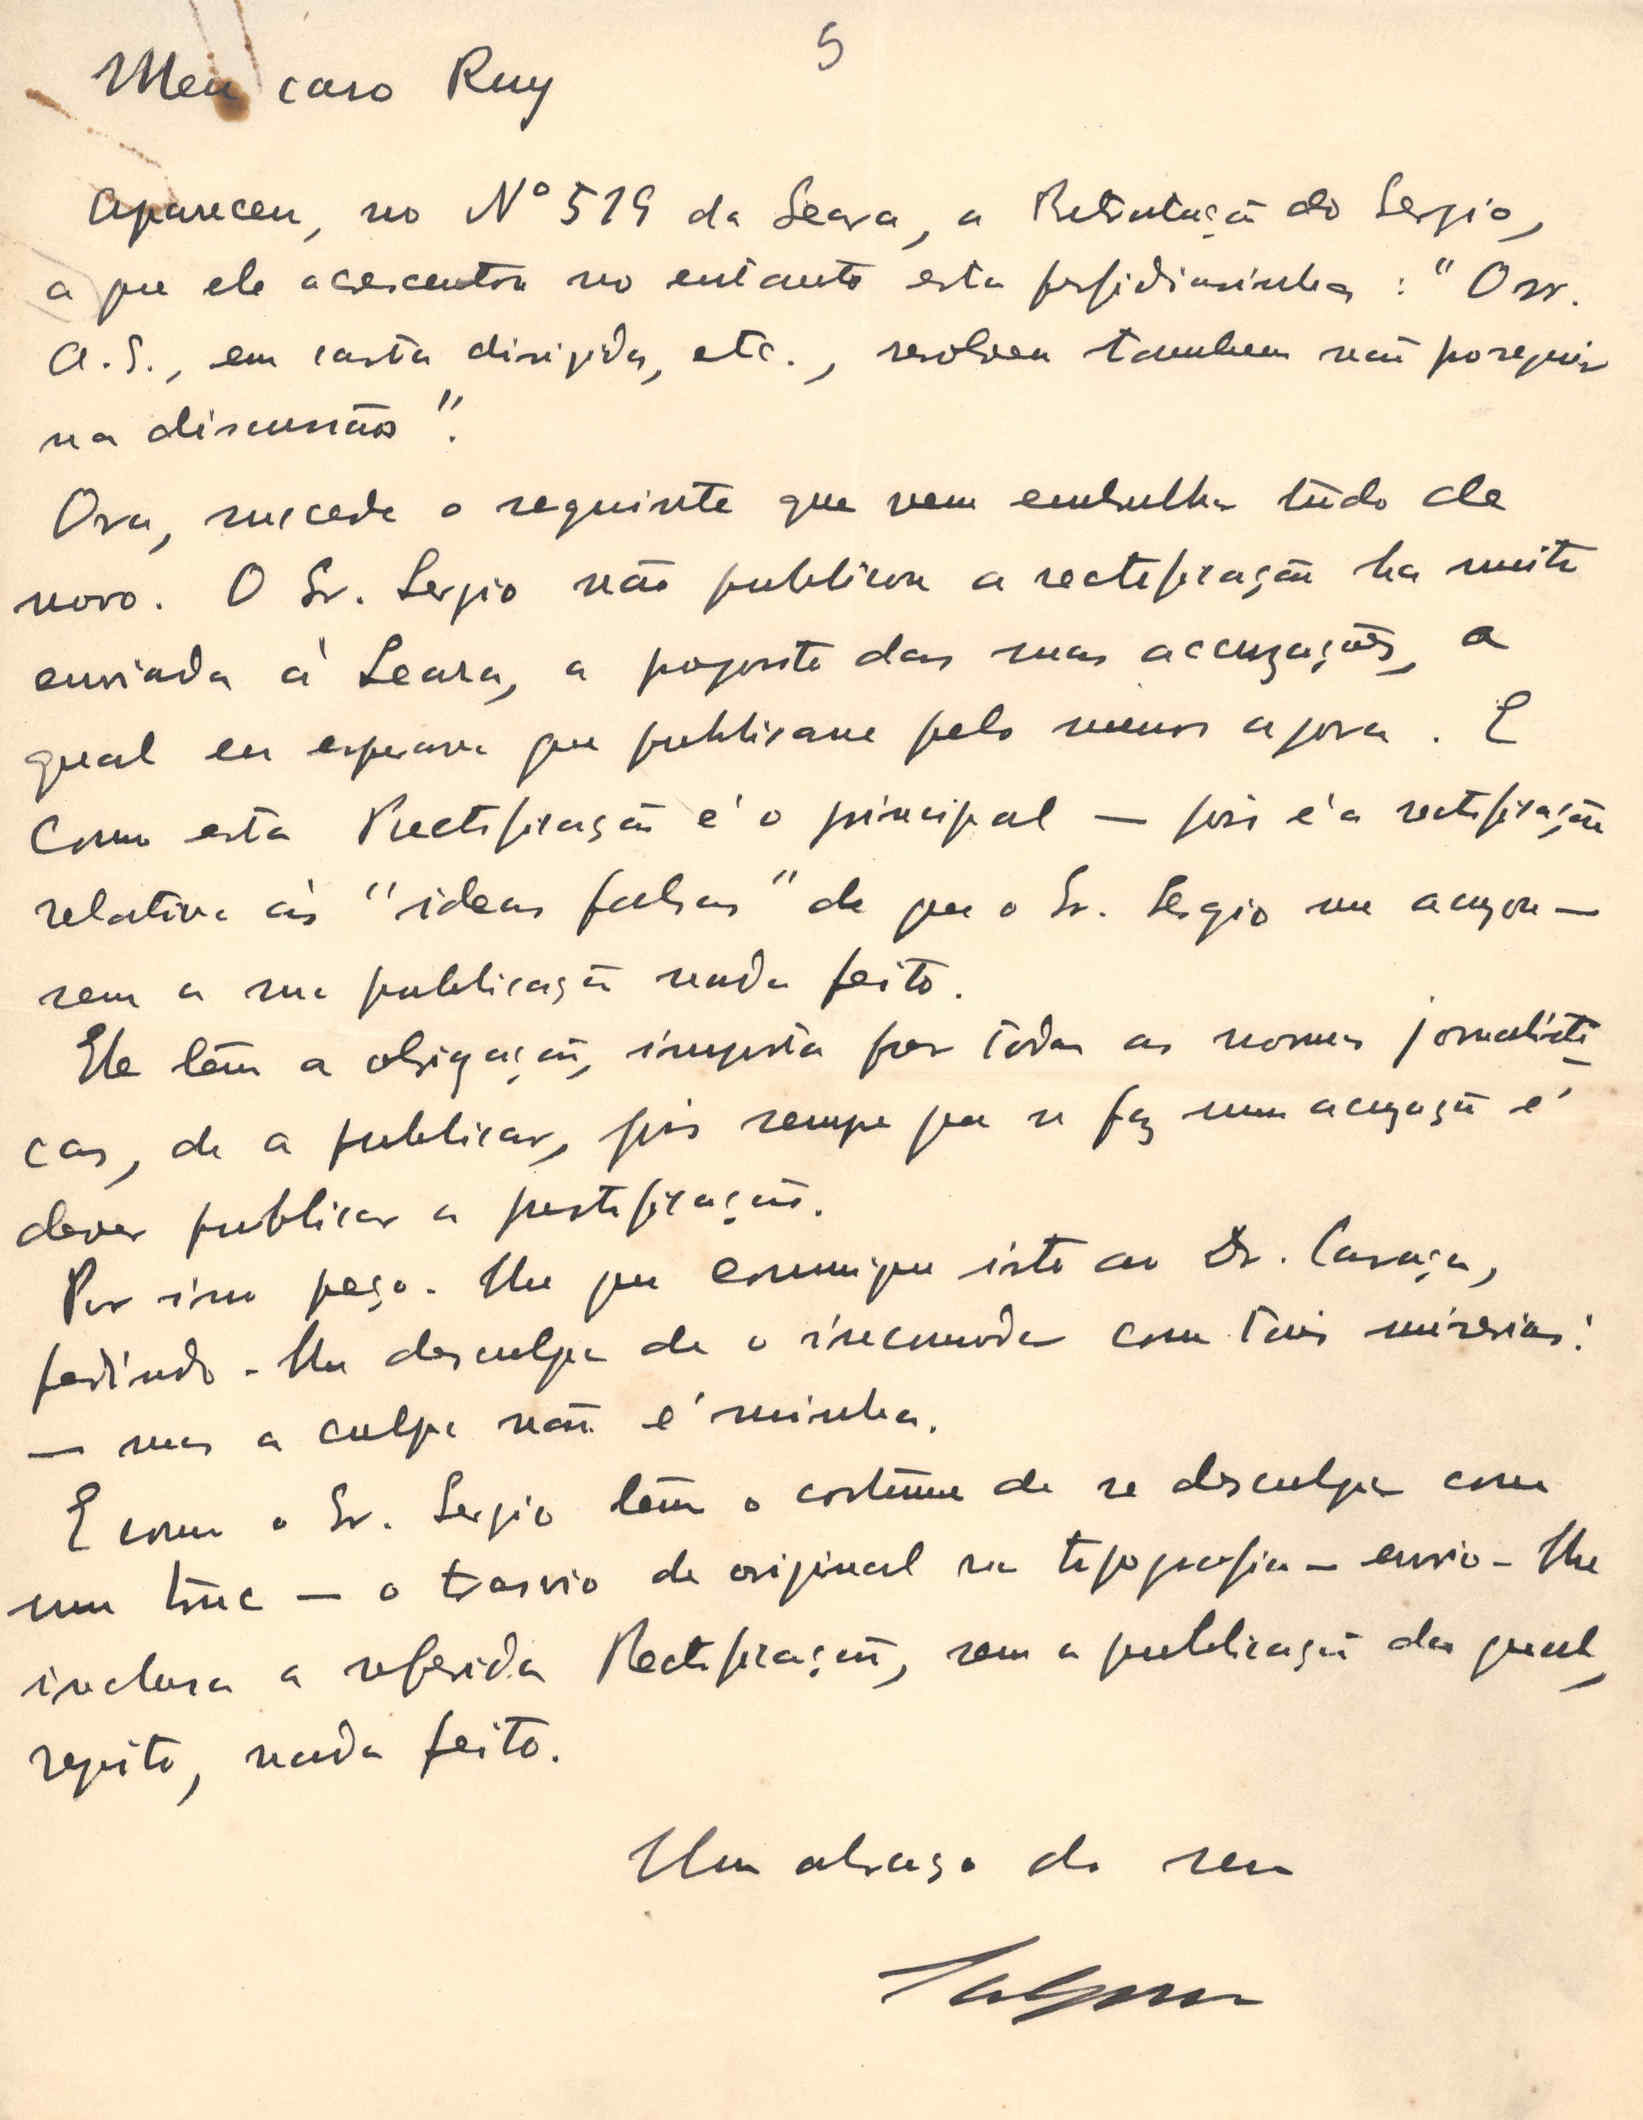 5
Meu caro Ruy
Apareceu, no Nº 519 da Seara, a Retratação do Sergio,
a que ele acrescentou no entanto esta perfidiasinha : "O sr.
A. S., em carta dirigida, etc., resolveu tambem não proseguir
na discussão".
Ora, sucede o seguinte que vem embrulhar tudo de
novo. O Sr. Sergio não publicou a rectificação ha muito
enviada à Seara, a proposito das suas accuzações, a
qual eu esperava que publicasse pelo menos agora. E
como esta Rectificação é o principal — pois é a rectificação
relativa às "ideas falsas" de que o Sr. Sergio me acuzou —
sem a sua publicação nada feito.
Ele têm a obrigação, imposta por todas as normas jornalisti-
cas, de a publicar, pois sempre que se faz uma acuzação é
dever publicar a justificação.
Por isso peço-lhe que comunique isto ao Dr. Caraça,
pedindo-lhe desculpa de o incomodar com tais miserias:
— mas a culpa não é minha.
E como o Sr. Sergio têm o costume de se desculpar com
um truc — o trasvio de original na tipografia — envio-lhe
inclusa a referida Rectificação, sem a publicação da qual,
repito, nada feito.
Um abraço do seu